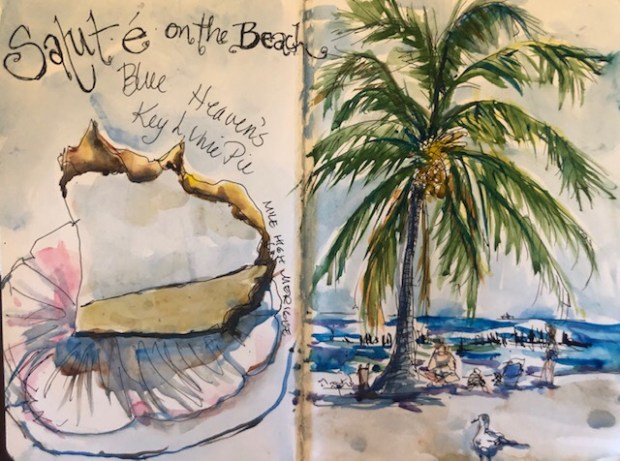 Saluté on the Beach
Blue Heaven's
Key Lime Pie
MILE HIGH MERIGUE